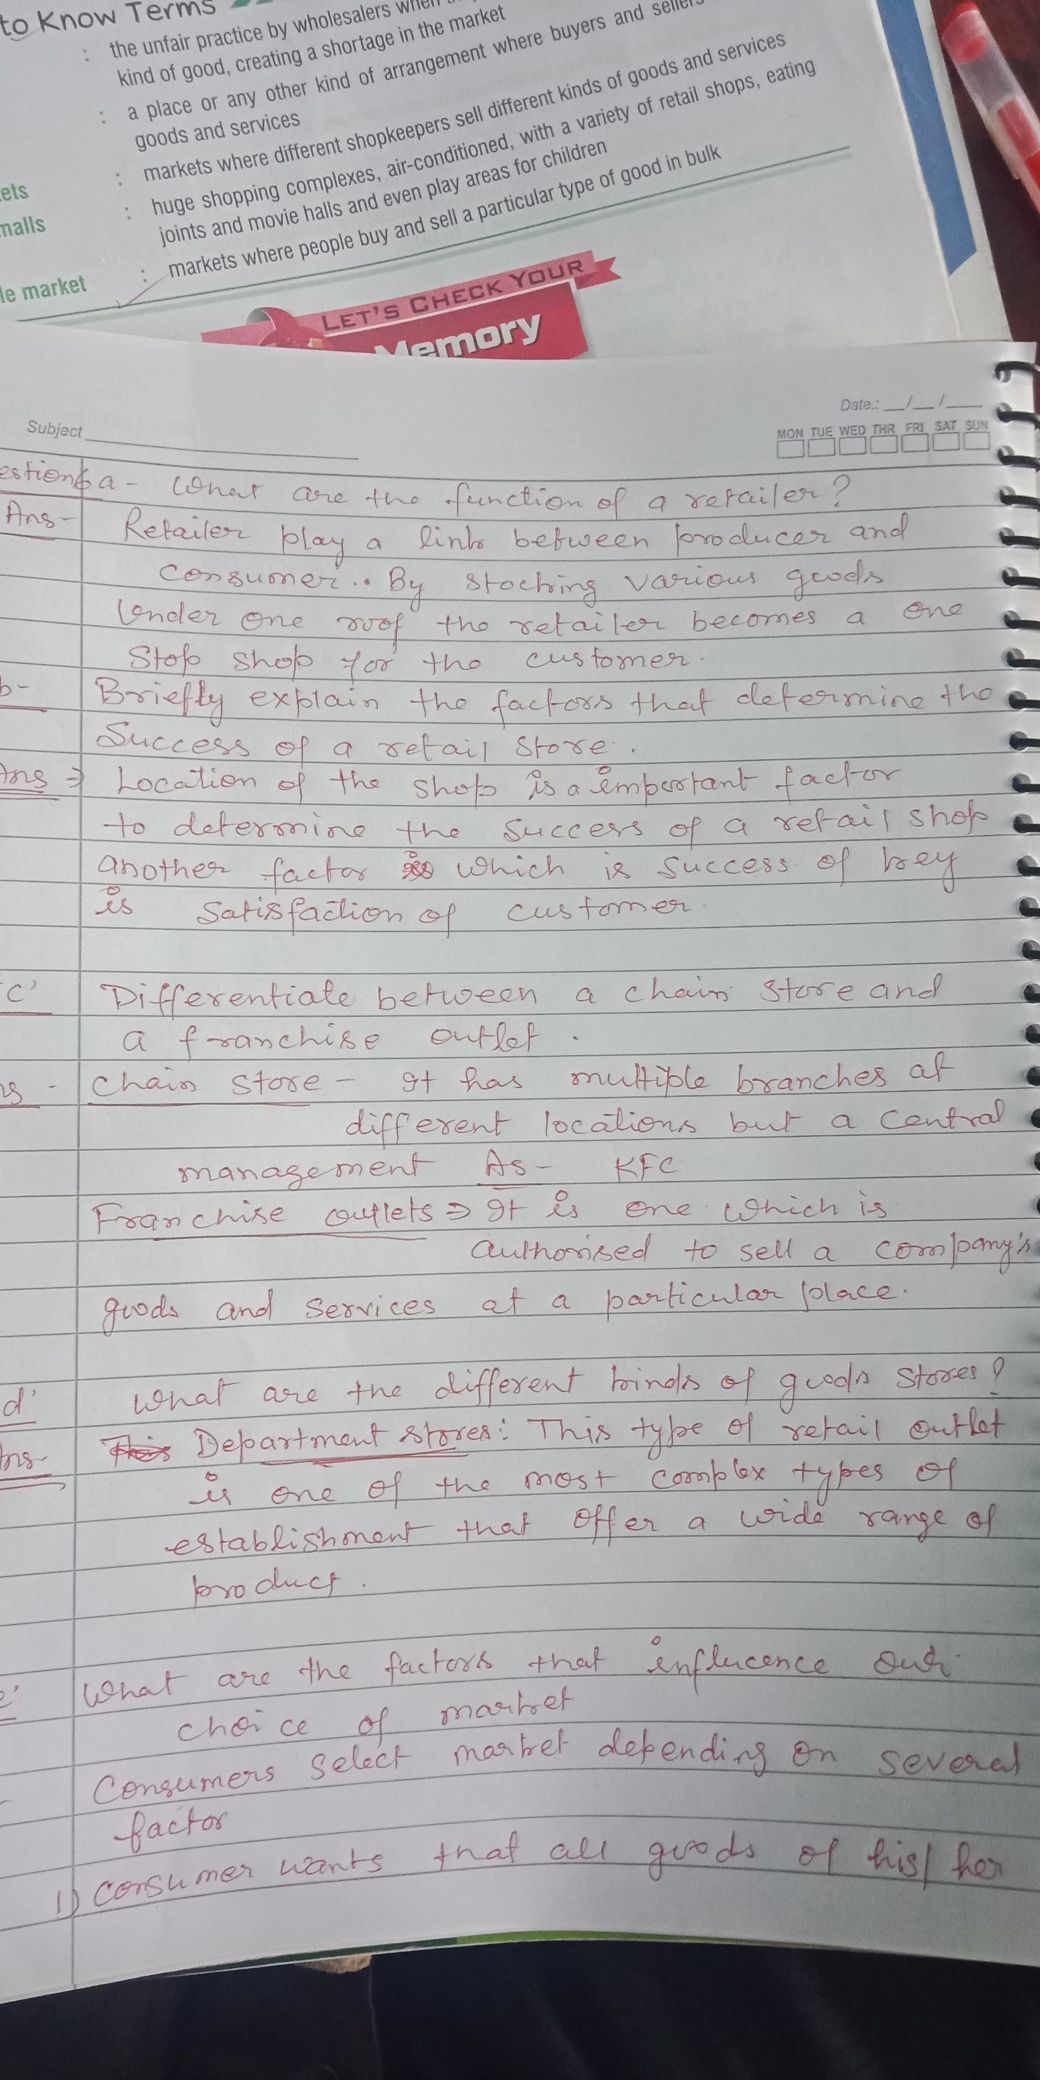 to Know Terms
: the unfair practice by wholesalers when
kind of good, creating a shortage in the market
: a place or any other kind of arrangement where buyers and sellers
goods and services
ets : markets where different shopkeepers sell different kinds of goods and services
malls : huge shopping complexes, air-conditioned, with a variety of retail shops, eating
joints and movie halls and even play areas for children
le market : markets where people buy and sell a particular type of good in bulk
LET'S CHECK YOUR
Memory
Subject
Date.: __/__/____
MON TUE WED THR FRI SAT SUN
estion a - What are the function of a retailer?
Ans- Retailer play a link between producer and
consumer.. By stocking various goods
Under one roof the retailer becomes a one
Stop shop for the customer.
b- Briefly explain the factors that determine the
Success of a retail store.
Ans ⇒ Location of the shop is a important factor
to determine the success of a retail shop
another factor which is success of key
is Satisfaction of customer.
c' Differentiate between a chain store and
a franchise outlet.
ns - Chain store - It has multiple branches at
different locations but a central
management As - KFC
Franchise outlets ⇒ It is one which is
authorised to sell a company's
goods and services at a particular place.
d' What are the different kinds of goods stores?
Ans- This Department stores: This type of retail outlet
is one of the most complex types of
establishment that offer a wide range of
product.
e' What are the factors that influcence our
choice of market
Consumers select market depending on several
factor
1) Consumer wants that all goods of his/her